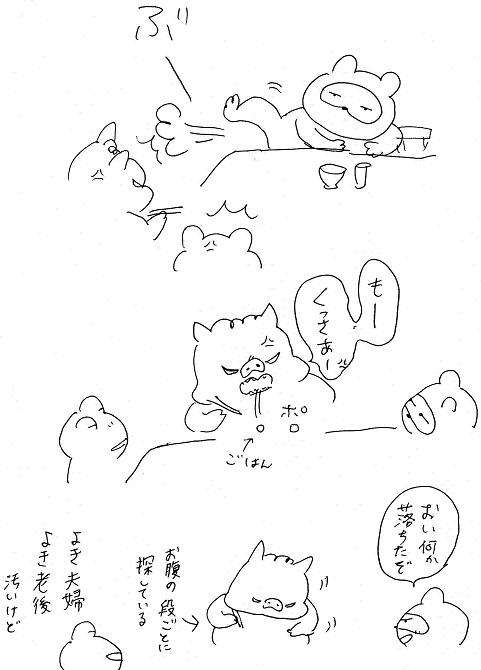 ぶ〃
もー
くっさあー〃
ポロ
ごはん
おい何か
落ちたぞ
お腹の段ごとに
探している
よき夫婦
よき老後
汚いけど